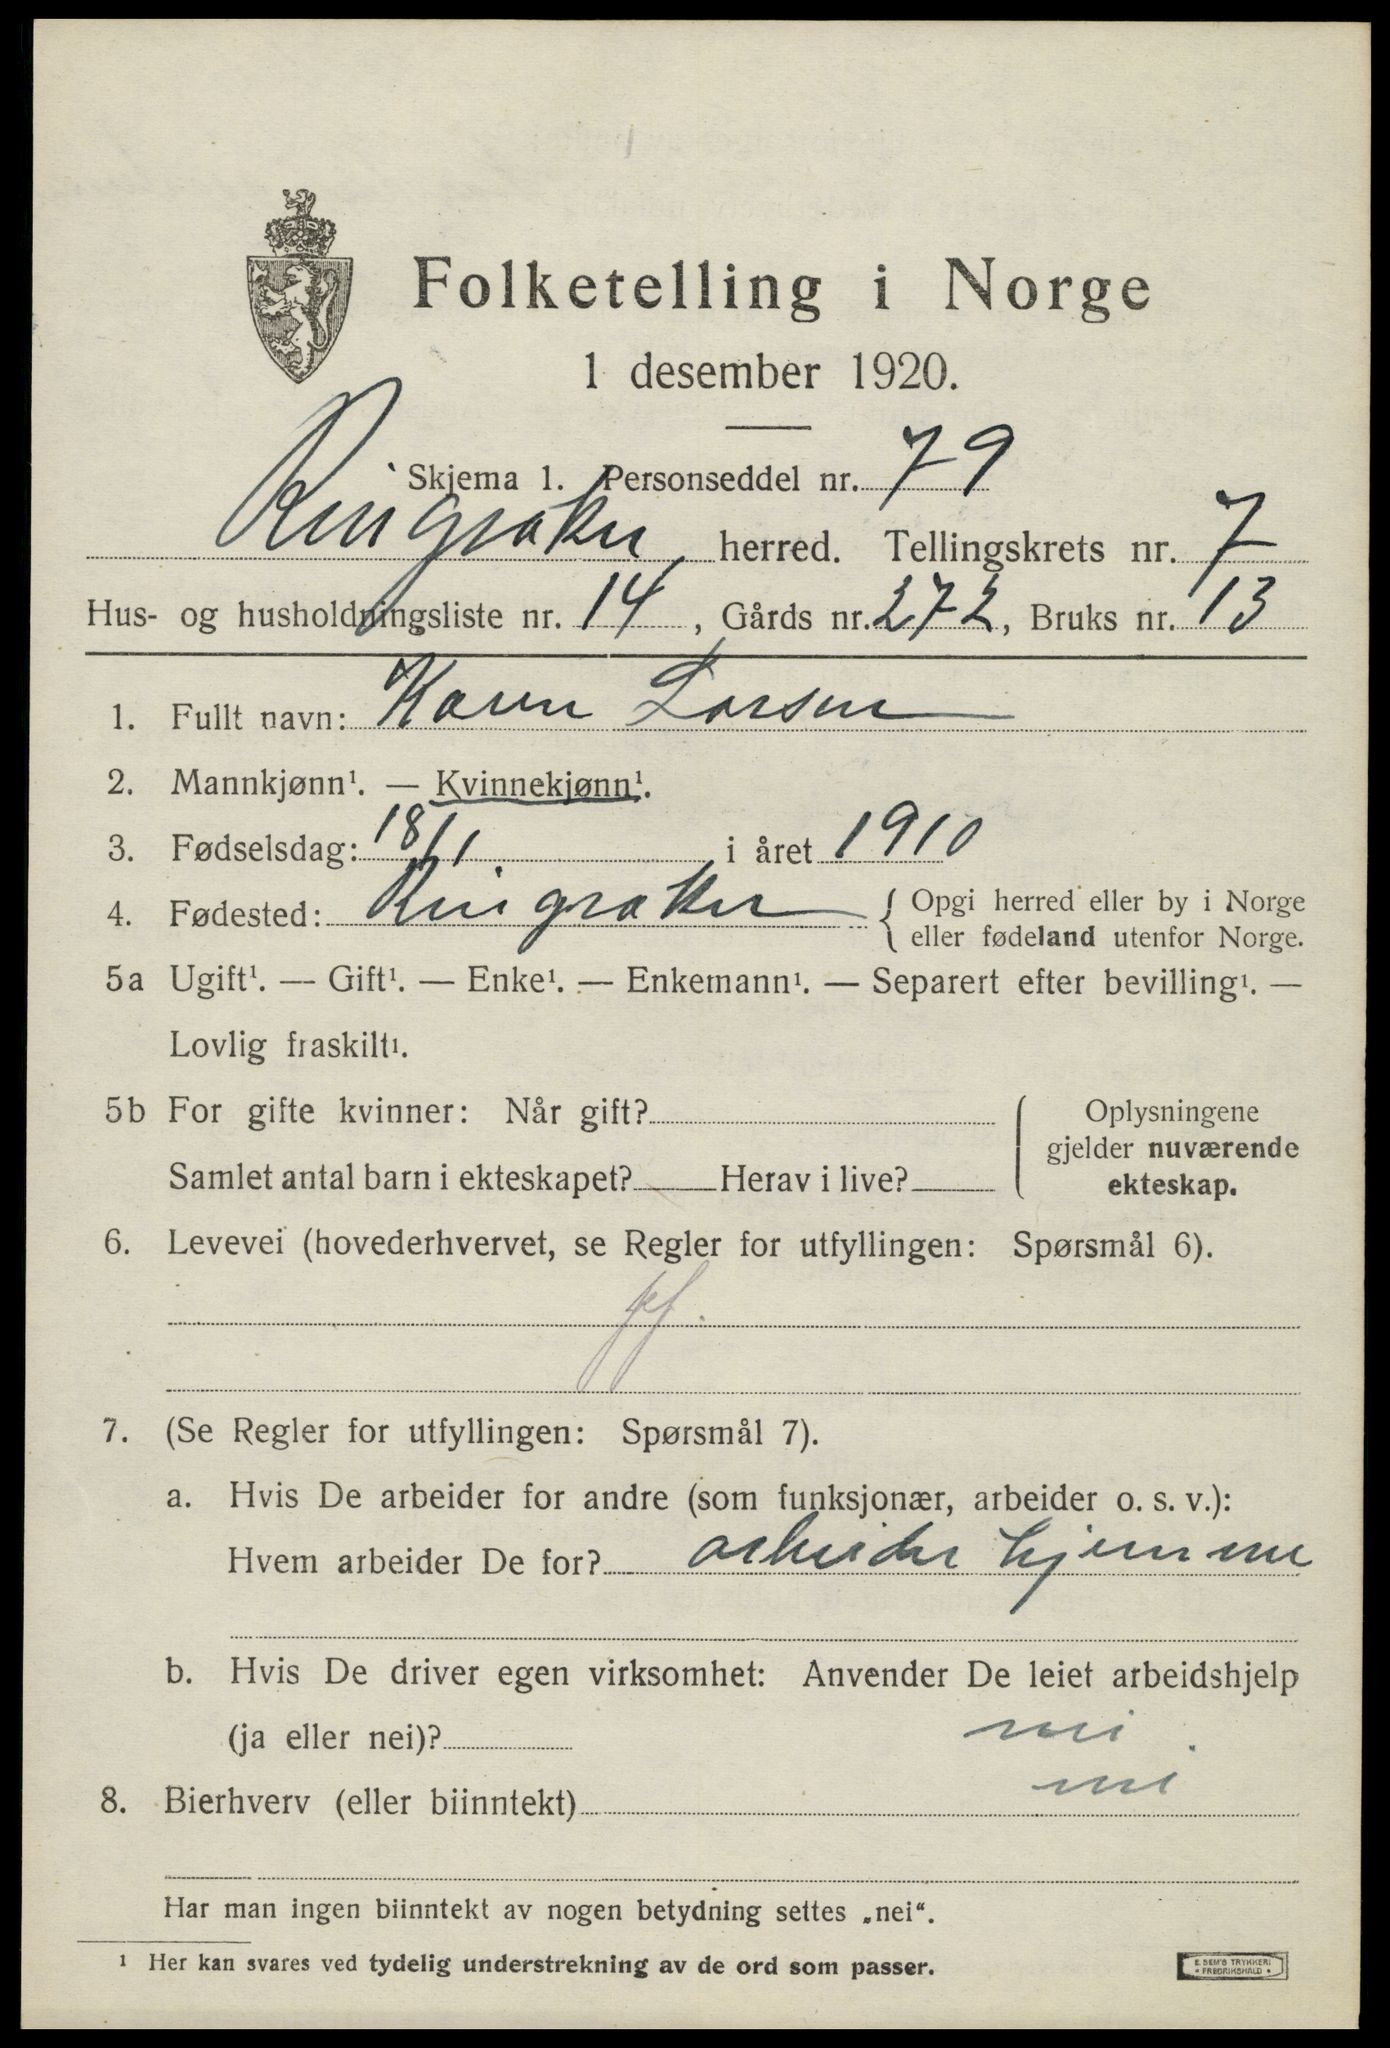 Folketelling i Norge
1 desember 1920.
Skjema 1. Personseddel nr. 79
Ringsaker herred. Tellingskrets nr. 7
Hus- og husholdningsliste nr. 14, Gårds nr. 272, Bruks nr. 13
1. Fullt navn: Karen Larsen
2. Mannkjønn¹. — Kvinnekjønn¹.
3. Fødselsdag: 18/1 i året 1910
4. Fødested: Ringsaker { Opgi herred eller by i Norge
eller fødeland utenfor Norge.
5a Ugift¹. — Gift¹. — Enke¹. — Enkemann¹. — Separert efter bevilling¹. —
Lovlig fraskilt¹.
5b For gifte kvinner: Når gift?
Samlet antal barn i ekteskapet? Herav i live?
Oplysningene
gjelder nuværende
ekteskap.
6. Levevei (hovederhvervet, se Regler for utfyllingen: Spørsmål 6).
7. (Se Regler for utfyllingen: Spørsmål 7).
a. Hvis De arbeider for andre (som funksjonær, arbeider o. s. v.):
Hvem arbeider De for? arbeider hjemme
b. Hvis De driver egen virksomhet: Anvender De leiet arbeidshjelp
(ja eller nei)? nei
8. Bierhverv (eller biinntekt) nei
Har man ingen biinntekt av nogen betydning settes „nei“.
¹ Her kan svares ved tydelig understrekning av de ord som passer.
E. SEM'S TRYKKERI
• FREDRIKSHALD •